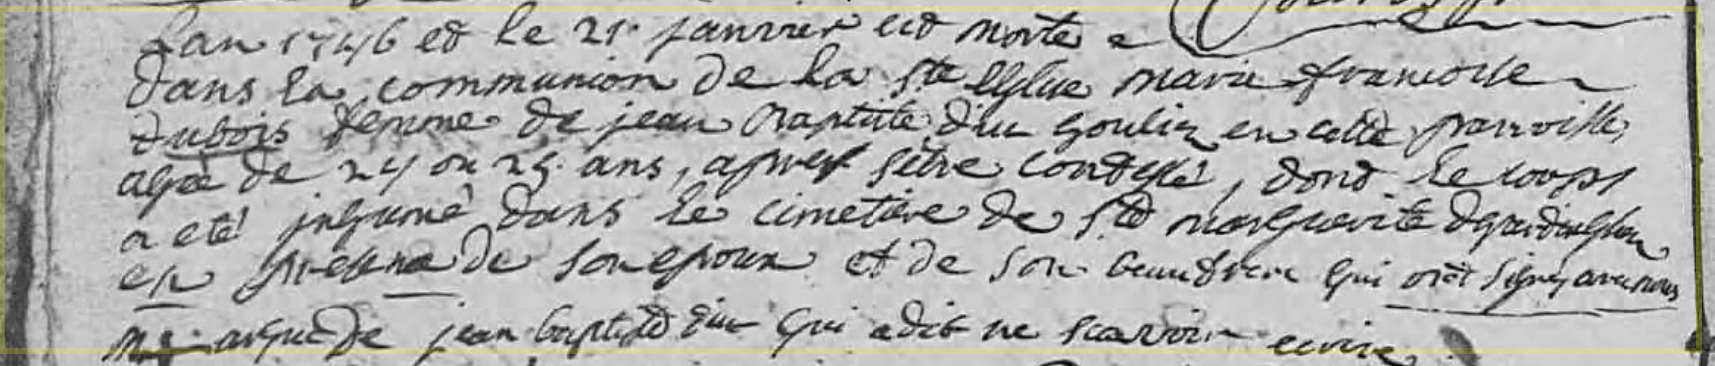 Lan 1746 et le 21 janvier est morte
dans la communion de la Ste Eglise marie francoise
dubois femme de jean Baptiste en cette parroisse
agée de 24 ou 25 ans, apres setre confessé, dont le corps
a eté inhumé dans le cimetiere de Ste marguerite
en presence de son epoux et de son beaufrere qui ont signes avec nous
marque de jean baptiste qui a dit ne scavoir ecrire